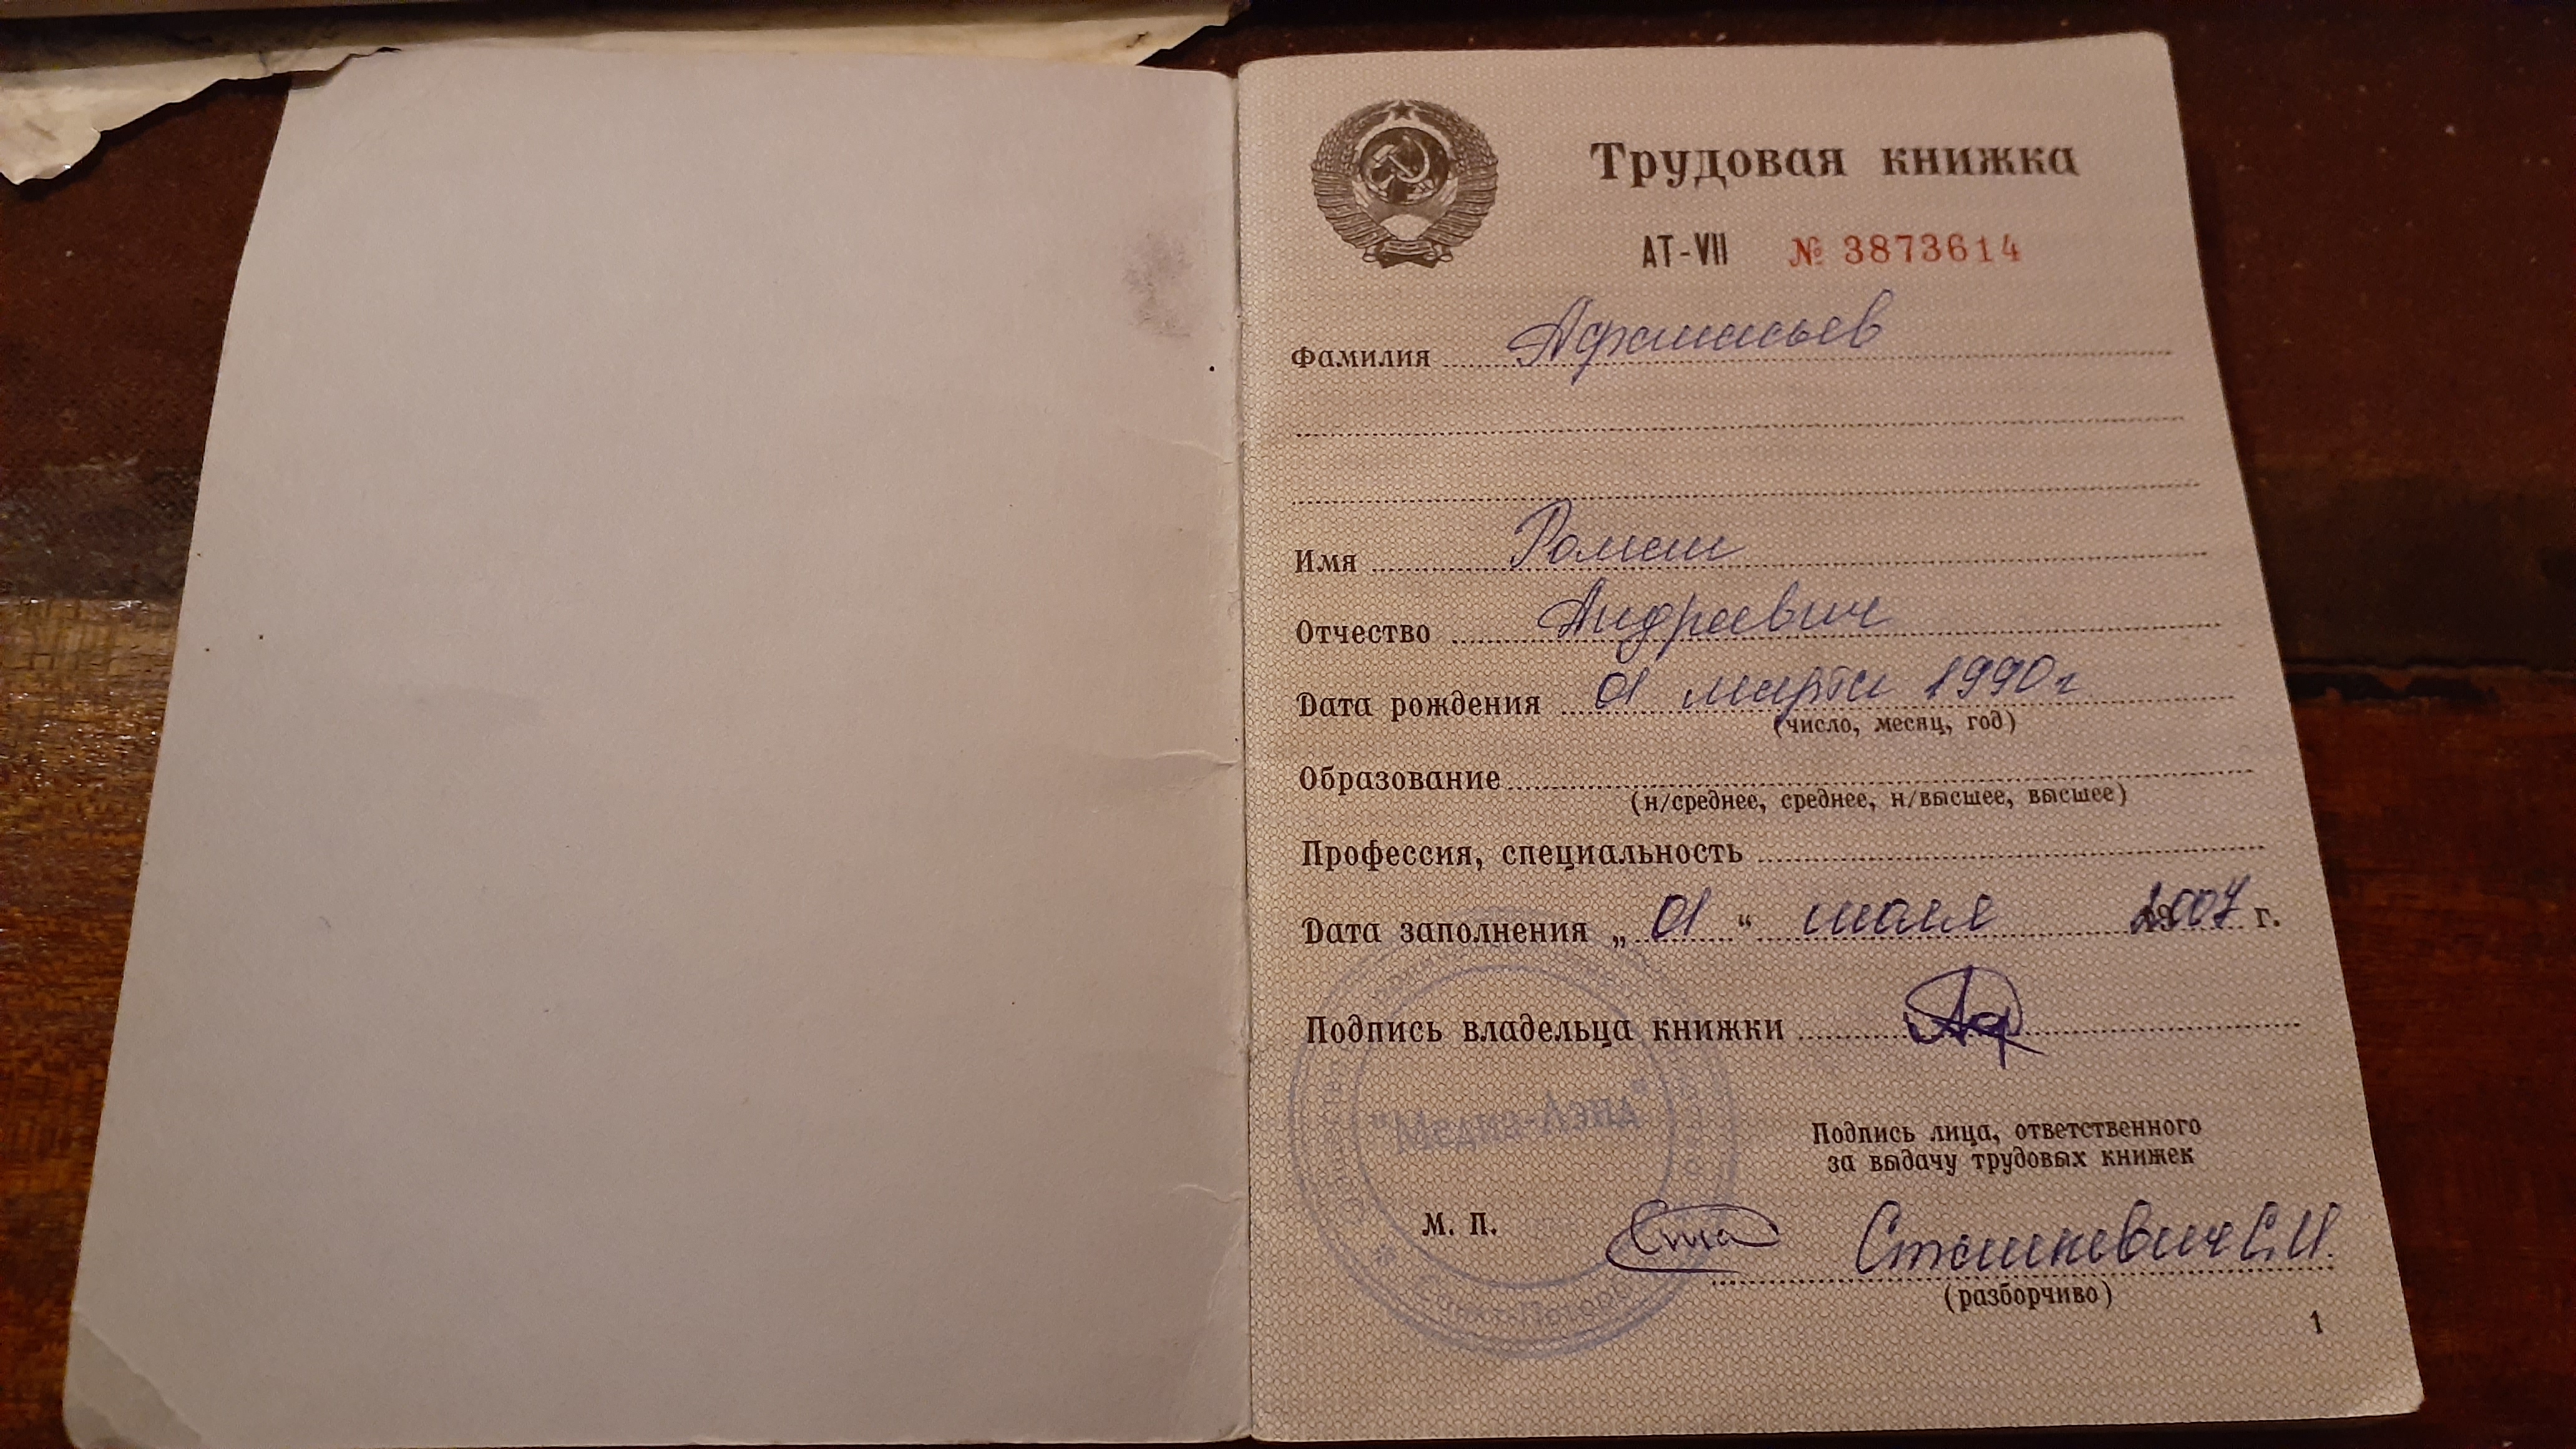 Трудовая книжка
АТ-VII № 3873614
Фамилия Афанасьев
Имя Роман
Отчество Андреевич
Дата рождения 01 марта 1990 г
(число, месяц, год)
Образование
(н/среднее, среднее, н/высшее, высшее)
Профессия, специальность
Дата заполнения „01“ июля 2007 г.
Подпись владельца книжки
"Медиа-Лэнд"
Подпись лица, ответственного
за выдачу трудовых книжек
М. П.
(разборчиво)
1